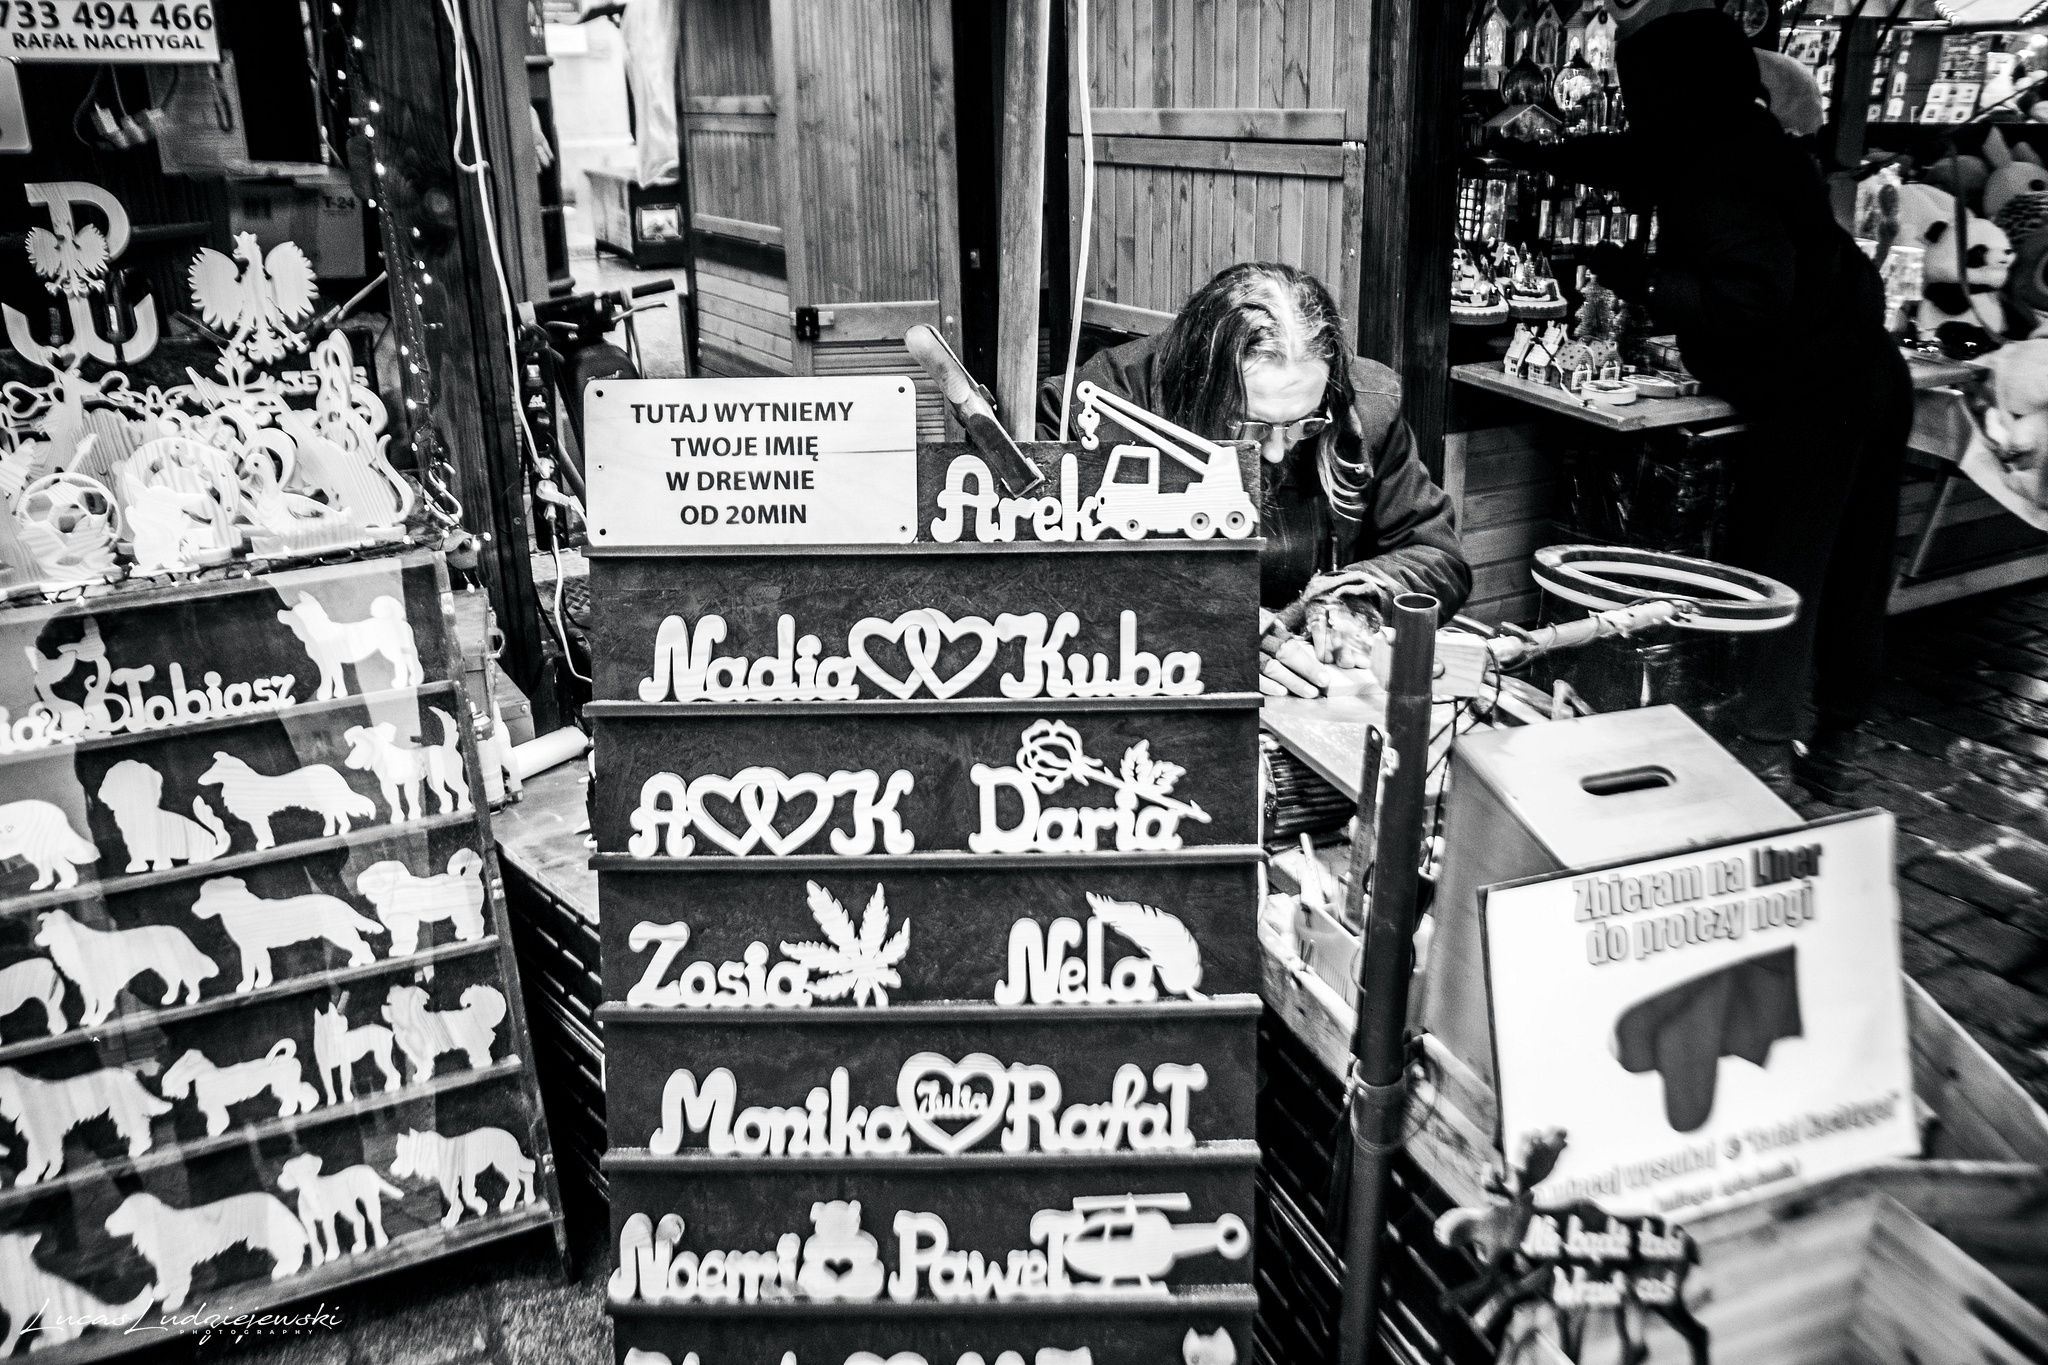 733 494 466
RAFAŁ NACHTYGAL
T-24
TUTAJ WYTNIEMY
TWOJE IMIĘ
W DREWNIE
OD 20MIN
Arek
Nadia Kuba
Tobiasz
A K Daria
Zosia Nela
Monika Julia Rafał
Noemi Paweł
Zbieram na Liner
do protezy nogi
Nie bądź taki
Wrzuć coś
Lucas Ludziejewski
PHOTOGRAPHY